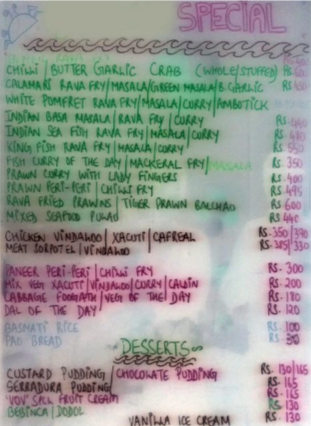 SPECIAL
CHILLI / BUTTER GARLIC CRAB (WHOLE/STUFFED) RS.
CALAMARI RAVA FRY/MASALA/GREEN MASALA/B.GARLIC RS 450
WHITE POMFRET RAVA FRY/MASALA/CURRY/AMBOTICK
INDIAN BASA MASALA/RAVA FRY/CURRY RS.
INDIAN SEA FISH RAVA FRY/MASALA/CURRY RS. 480
KING FISH RAVA FRY/MASALA/CURRY RS 550
FISH CURRY OF THE DAY/MACKERAL FRY/MASALA RS. 350
PRAWN CURRY WITH LADY FINGERS RS. 400
PRAWN PERI-PERI/CHILLI FRY RS. 495
RAVA FRIED PRAWNS/TIGER PRAWN BALCHAO RS 600
MIXED SEAFOOD PULAO RS 440
CHICKEN VINDALOO/XACUTI/CAFREAL RS. 350/370
MEAT SORPOTEL/VINDALOO RS. 385/330
PANEER PERI-PERI/CHILLI FRY RS. 300
MIX VEG XACUTI/VINDALOO/CURRY/CALDIN RS. 200
CABBAGE FOOGATH/VEG OF THE DAY RS. 170
DAL OF THE DAY RS. 120
BASMATI RICE RS. 100
PAO BREAD RS. 30
DESSERTS
CUSTARD PUDDING/CHOCOLATE PUDDING RS. 130/165
SERRADURA PUDDING/ RS. 165
FRUIT CREAM RS. 165
BEBINCA/DODOL RS 130
VANILLA ICE CREAM RS. 130